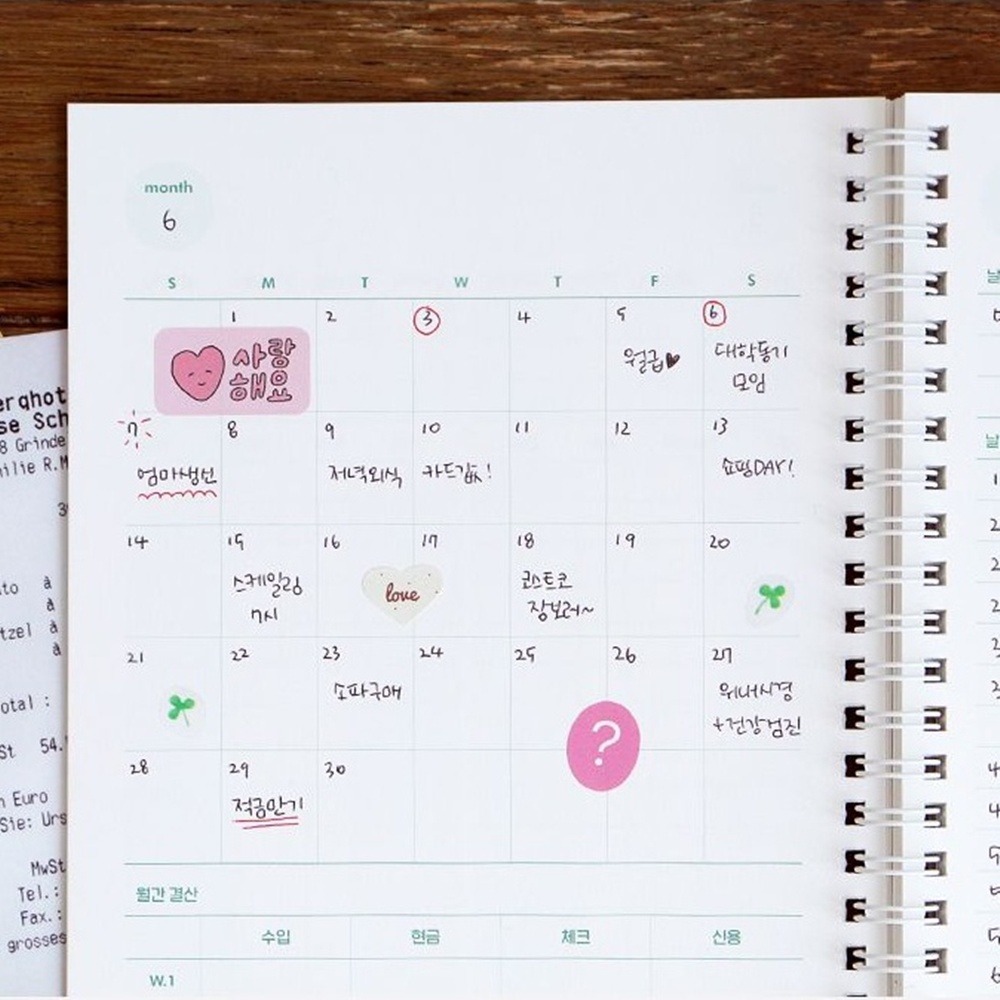 month
6
S M T W T F S
1 2 3 4 5 6
사랑
해요
월급♥
대학동기
모임
7 8 9 10 11 12 13
엄마생신
저녁외식
카드값!
쇼핑DAY!
14 15 16 17 18 19 20
스케일링
7시
love
코스트코
장보러~
21 22 23 24 25 26 27
소파구매
위내시경
+건강검진
?
28 29 30
적금만기
월간 결산
수입 현금 체크 신용
W.1
se Sch
8 Grinde
ilie R.M
à
à
tzel à
à
otal :
St 54.
n Euro
Sie: Urs
MwSt
Tel.:
Fax.:
grosses
날
날